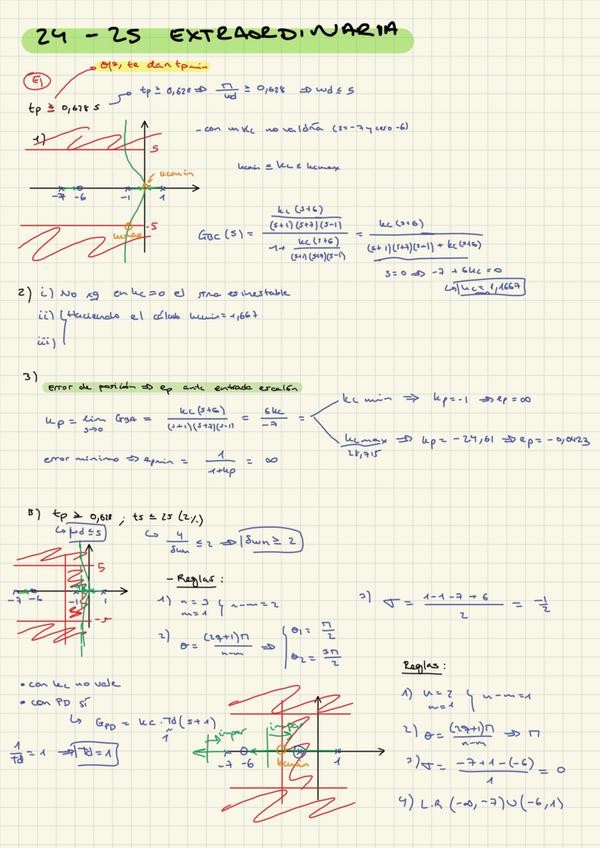 24 - 25 EXTRAORDINARIA
E1)
Ojo, te dan tpmin
tp ≥ 0,628 s
tp ≥ 0,628 ⇒ π/ωd ≥ 0,628 ⇒ ωd ≤ 5
1)
5
-7 -6 -1 1
-5
kcmin
kcmax
- con un kc no valdría (s=-7 y cero -6)
kcmin ≤ kc ≤ kcmax
GBC(s) = (kc(s+6)/((s+1)(s+7)(s-1))) / (1 + kc(s+6)/((s+1)(s+7)(s-1))) = kc(s+6)/((s+1)(s+7)(s-1) + kc(s+6))
s=0 ⇒ -7 + 6kc = 0
↳ kc = 1,1667
2) i) No xq en kc=0 el stma es inestable
ii) Haciendo el cálculo kcmin = 1,667
iii)
3)
error de posición ⇒ ep ante entrada escalón
kp = lim s→0 GBA = kc(s+6)/((s+1)(s+7)(s-1)) = 6kc/-7 =
kc min ⇒ kp = -1 ⇒ ep = ∞
kcmax ⇒ kp = -24,61 ⇒ ep = -0,0423
28,715
error mínimo ⇒ epmin = 1/(1+kp) = ∞
B) tp ≥ 0,628 ; ts ≤ 2s (2%)
↳ ωd ≤ 5
↳ 4/δωn ≤ 2 ⇒ δωn ≥ 2
5
-7 -6 -1 1
-5
- Reglas:
1) n = 3
m = 1
n - m = 2
2) θ = (2q+1)π/(n-m) ⇒ θ1 = π/2
θ2 = 3π/2
3) σ = (1-1-7+6)/2 = -1/2
• con kc no vale
• con PD sí
↳ GPD = kc·Td(s+1)
1/Td = 1 ⇒ Td = 1
impar
impar
-7 -6 1
kcmin
Reglas:
1) n = 2
m = 1
n - m = 1
2) θ = (2q+1)π/(n-m) ⇒ π
3) σ = (-7+1-(-6))/1 = 0
4) L.R (-∞, -7) ∪ (-6, 1)